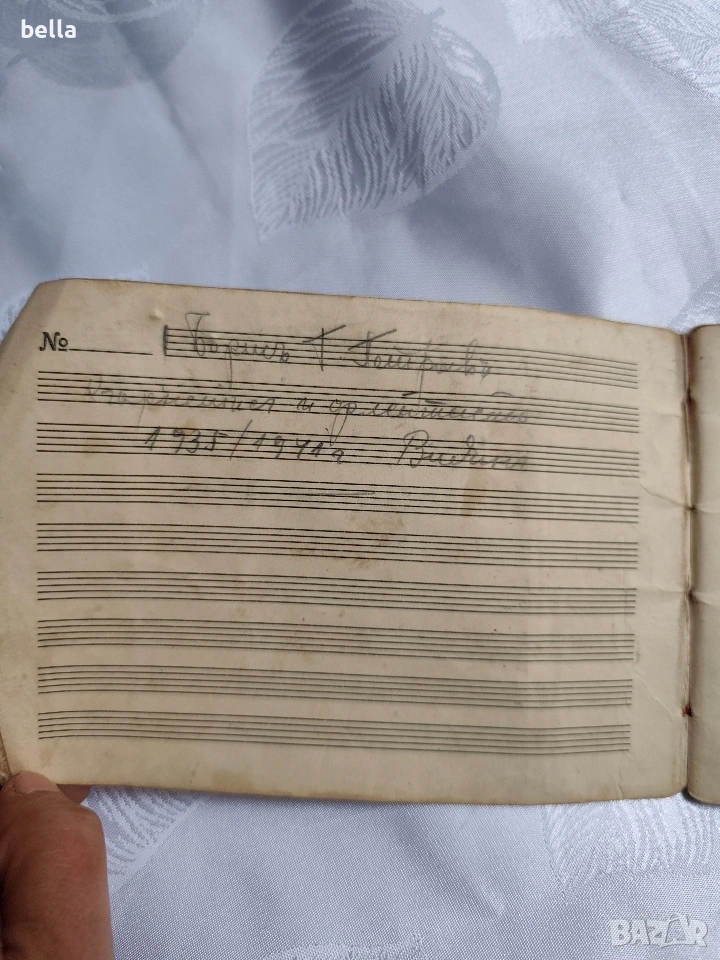 bella
№ Борисъ Г. Петровъ
и
1935/1941 г. Видинъ
BAZAR